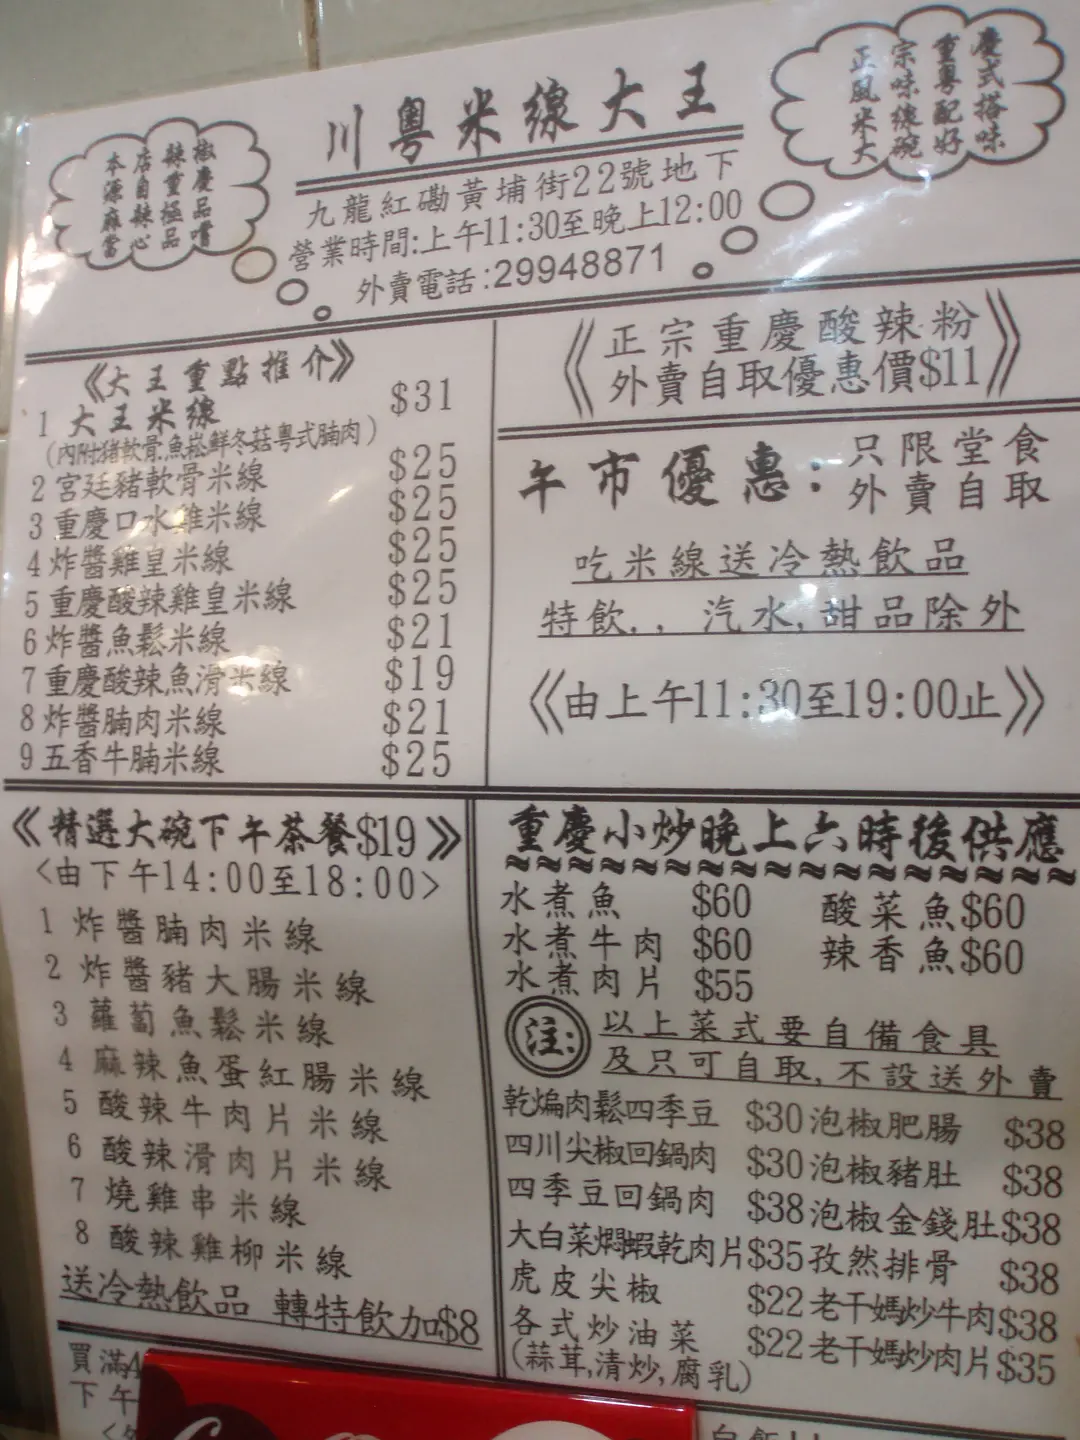 川粵米線大王
九龍紅磡黃埔街22號地下
營業時間:上午11:30至晚上12:00
外賣電話:29948871
本店辣椒
源自重慶
麻辣極品
當心品嚐
正宗重慶
風味粵式
米線配搭
大碗好味
《大王重點推介》
1 大王米線 $31
(內附豬軟骨.魚崧鮮冬菇粵式腩肉)
2 宮廷豬軟骨米線 $25
3 重慶口水雞米線 $25
4 炸醬雞皇米線 $25
5 重慶酸辣雞皇米線 $25
6 炸醬魚鬆米線 $21
7 重慶酸辣魚滑米線 $19
8 炸醬腩肉米線 $21
9 五香牛腩米線 $25
《正宗重慶酸辣粉
外賣自取優惠價$11》
午市優惠:只限堂食
外賣自取
吃米線送冷熱飲品
特飲,,汽水,甜品除外
《由上午11:30至19:00止》
《精選大碗下午茶餐$19》
<由下午14:00至18:00>
1 炸醬腩肉米線
2 炸醬豬大腸米線
3 蘿蔔魚鬆米線
4 麻辣魚蛋紅腸米線
5 酸辣牛肉片米線
6 酸辣滑肉片米線
7 燒雞串米線
8 酸辣雞柳米線
送冷熱飲品 轉特飲加$8
重慶小炒晚上六時後供應
水煮魚 $60 酸菜魚$60
水煮牛肉 $60 辣香魚$60
水煮肉片 $55
注:以上菜式要自備食具
及只可自取,不設送外賣
乾煸肉鬆四季豆 $30 泡椒肥腸 $38
四川尖椒回鍋肉 $30 泡椒豬肚 $38
四季豆回鍋肉 $38 泡椒金錢肚$38
大白菜燜蝦乾肉片$35 孜然排骨 $38
虎皮尖椒 $22 老干媽炒牛肉$38
各式炒油菜 $22 老干媽炒肉片$35
(蒜茸,清炒,腐乳)
買滿
下午